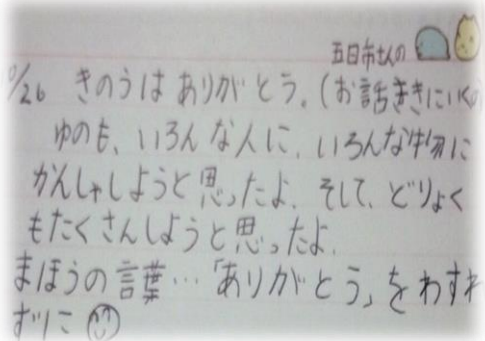 五日市さんの
/26 きのうは ありがとう。(お話ききにいくの
ゆのも、いろんな人に、いろんな物に
かんしゃしようと思ったよ。そして、どりょく
もたくさんしようと思ったよ。
まほうの言葉…「ありがとう」をわすれ
ずに